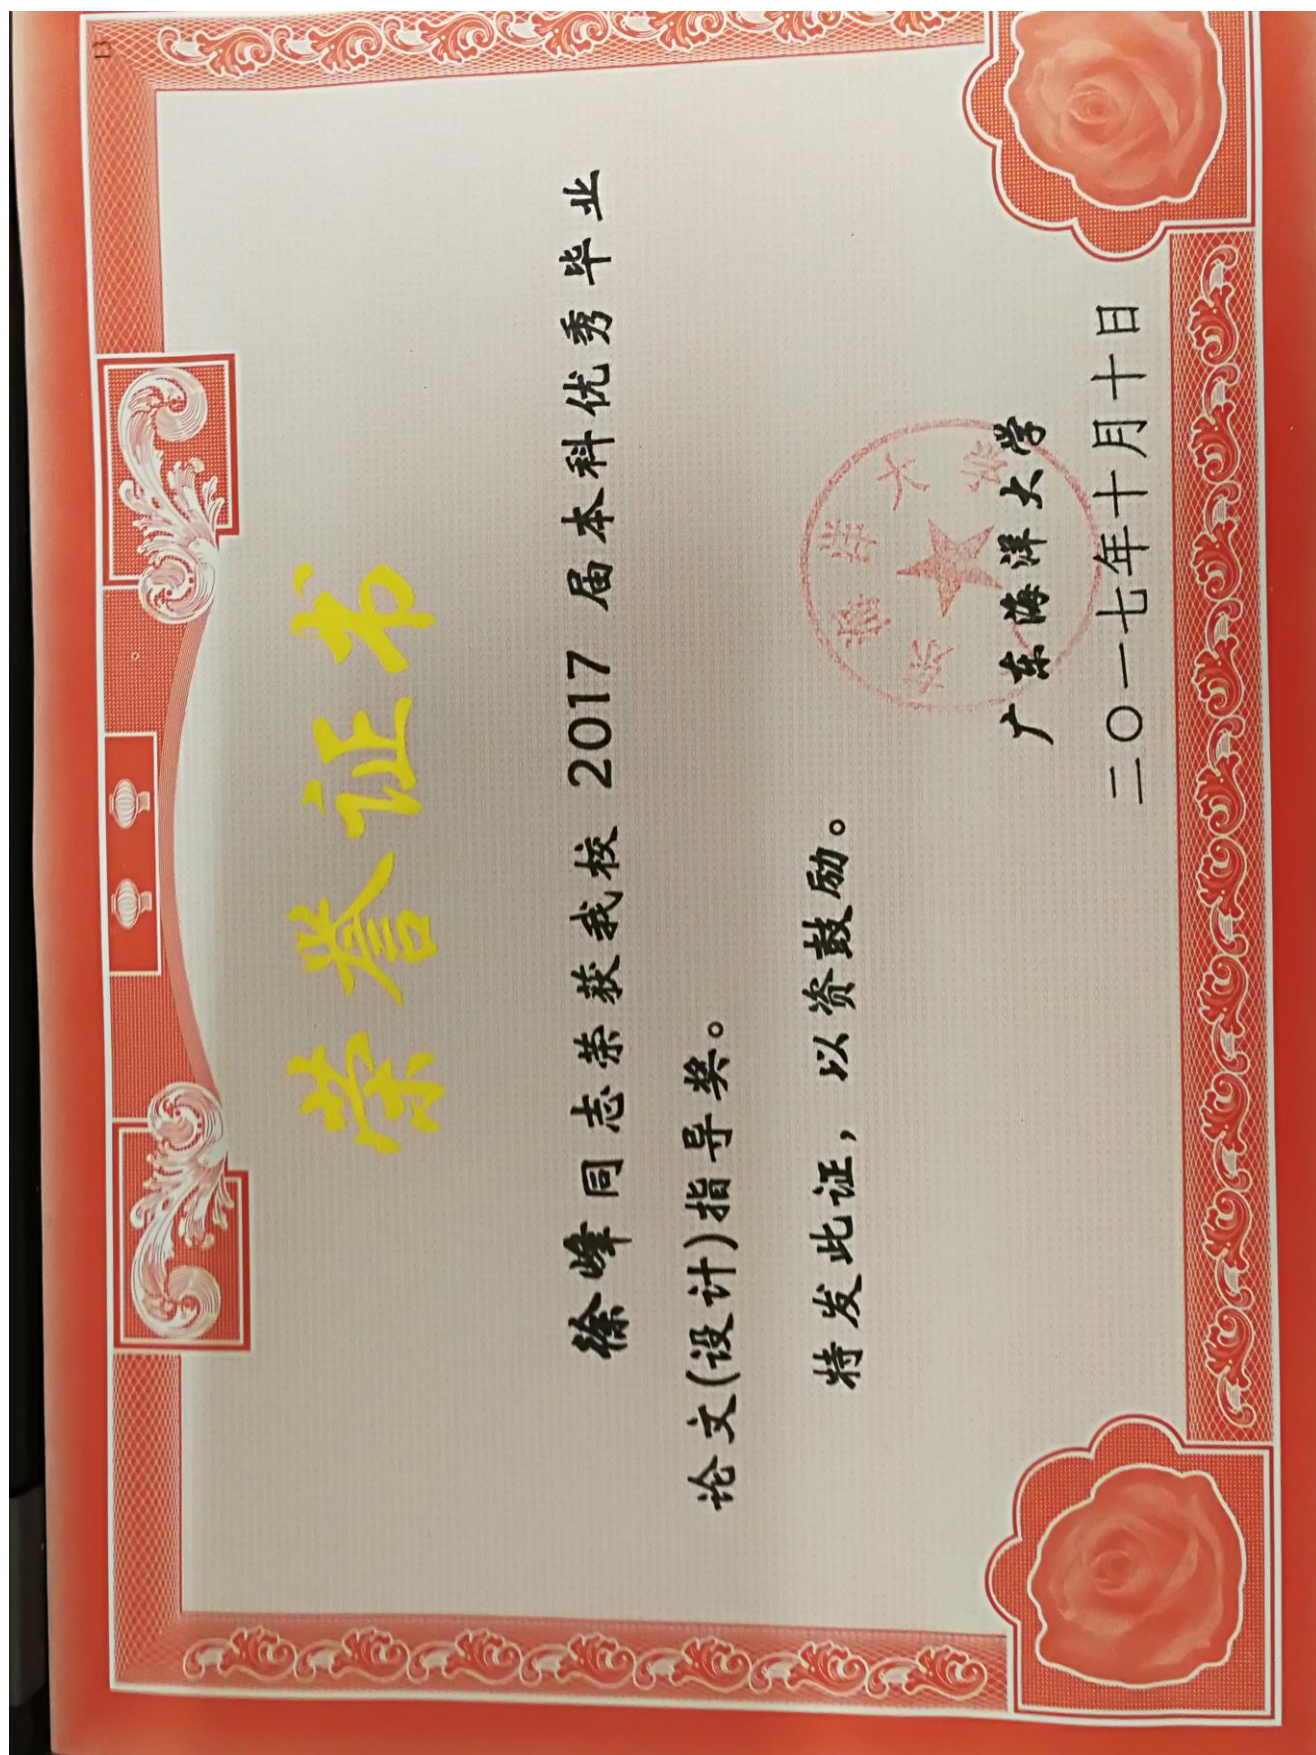 荣誉证书
徐峰同志荣获我校 2017 届本科优秀毕业
论文(设计)指导奖。
特发此证，以资鼓励。
广东海洋大学
二〇一七年十月十日